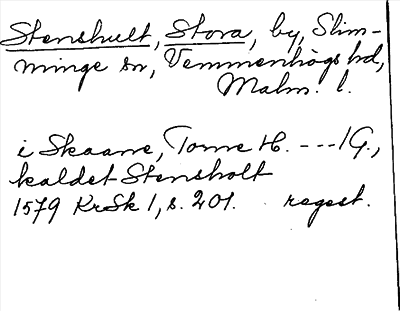 Stenshult, Stora, by, Slim-
minge sn, Vemmenhögs hd,
Malm. l.
i Skaane, Torne H. --- 1 G.,
kaldet Stensholt
1579 KrSk 1, s. 201. regest.